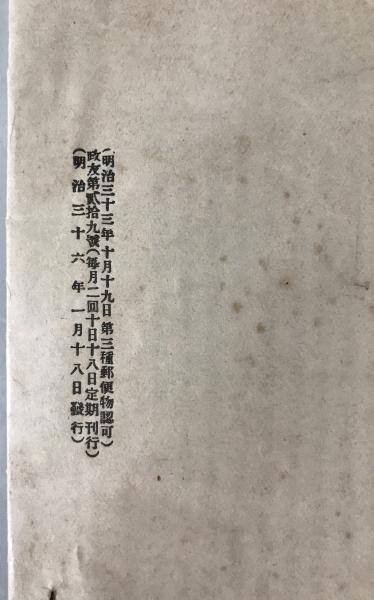 (明治三十三年十月十九日第三種郵便物認可)
政友第貳拾九號(每月二回十日十八日定期刊行)
(明治三十六年一月十八日發行)